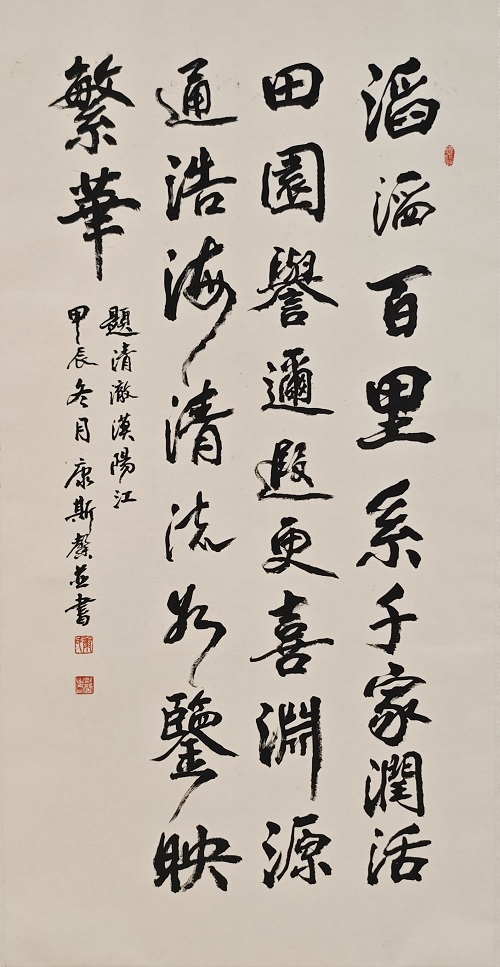 滔滔百里系千家潤活
田園譽邇遐更喜淵源
通浩海清流如鑒映
繁華
題清澈漠陽江
甲辰冬月康斯馨並書